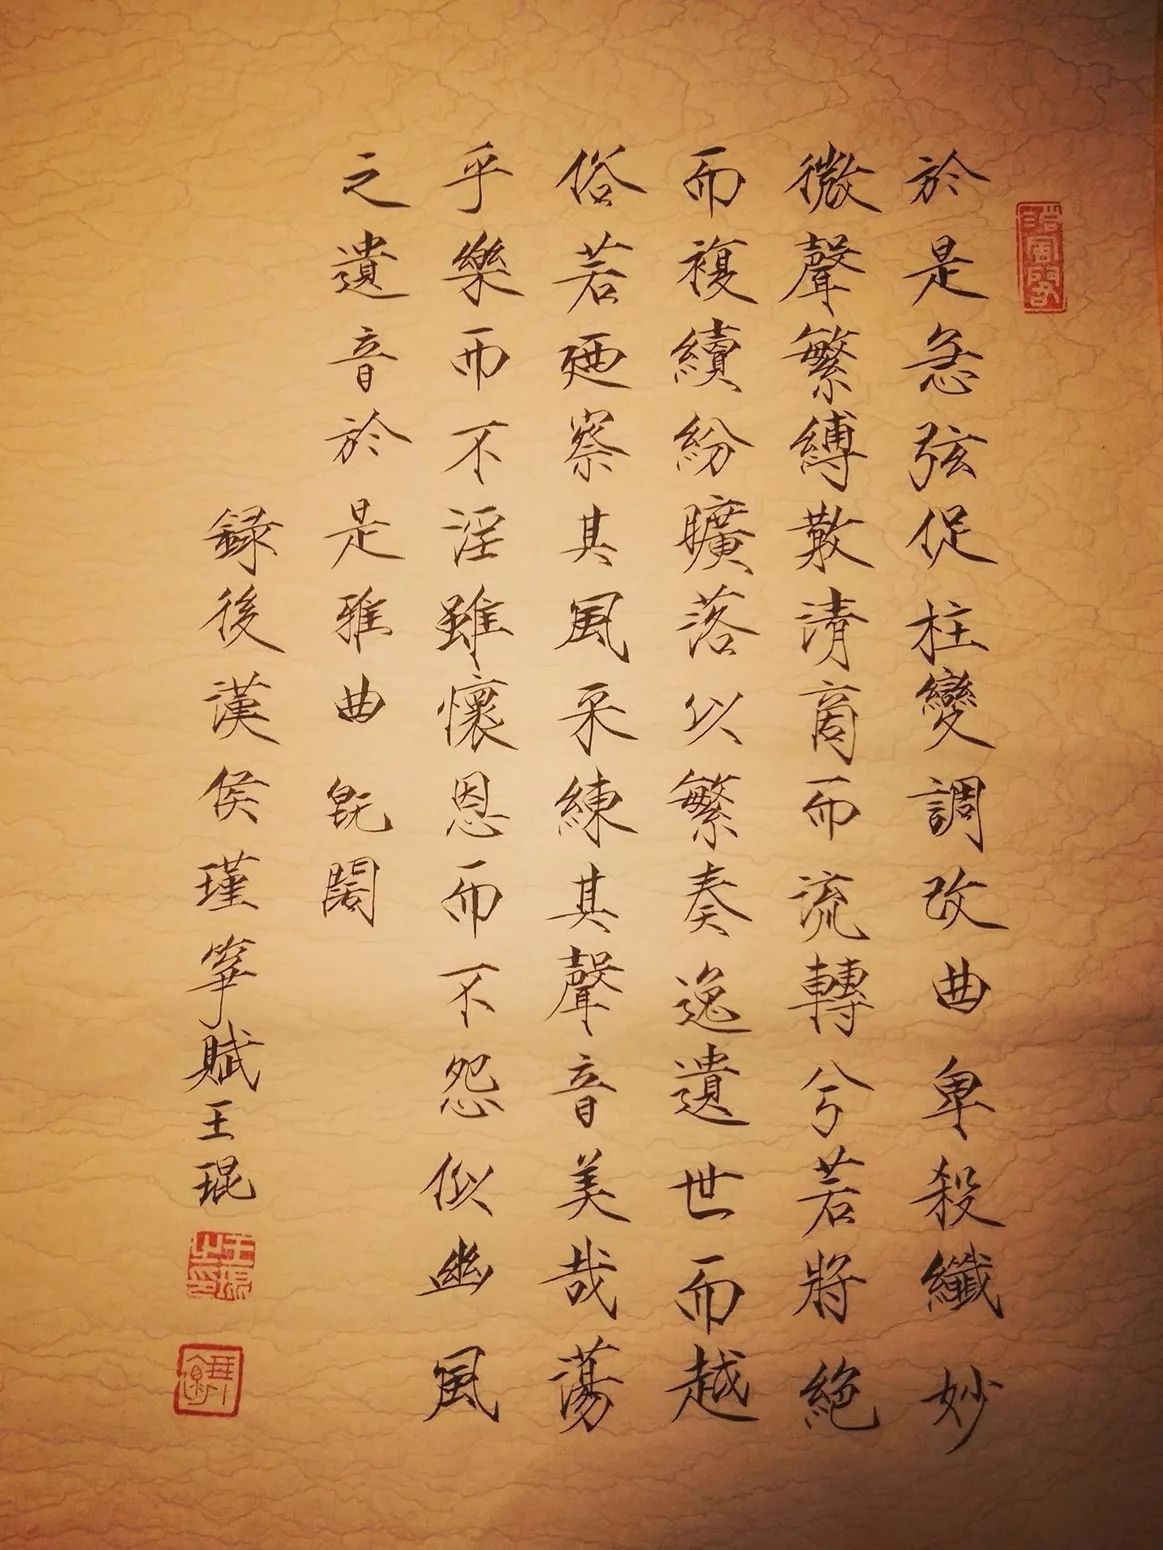 於是急弦促柱變調改曲卑殺纖妙
微聲繁縛散清商而流轉兮若將絕
而複續紛曠落以繁奏逸遺世而越
俗若廼察其風采練其聲音美哉蕩
乎樂而不淫雖懷恩而不怨似幽風
之遺音於是雅曲既闋
錄後漢侯瑾箏賦王琨
王琨之印